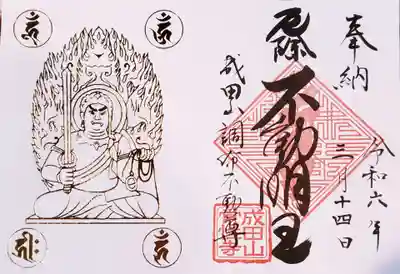 奉納
令和六年
三月十四日
厄除
不動明王
成田山
調布不動尊
成田山
常性寺